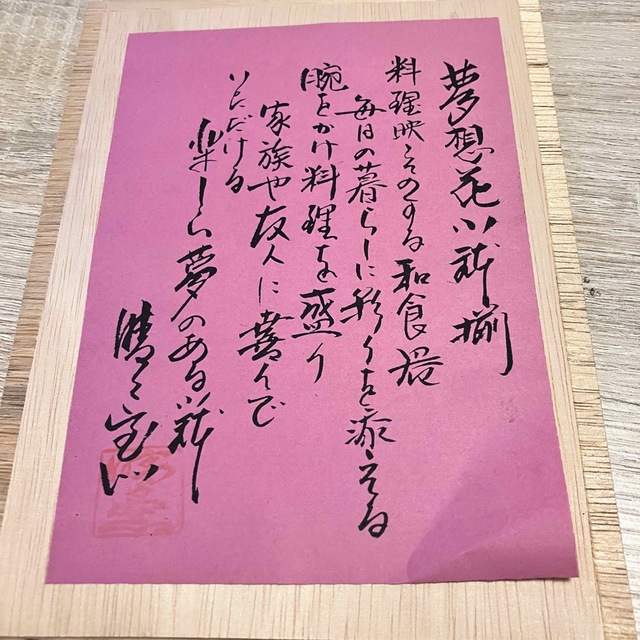 夢想花小鉢揃
料理映えのする和食器
毎日の暮らしに彩りを添える
腕をかけ料理を盛り
家族や友人に喜んで
いただける
楽しい夢のある小鉢